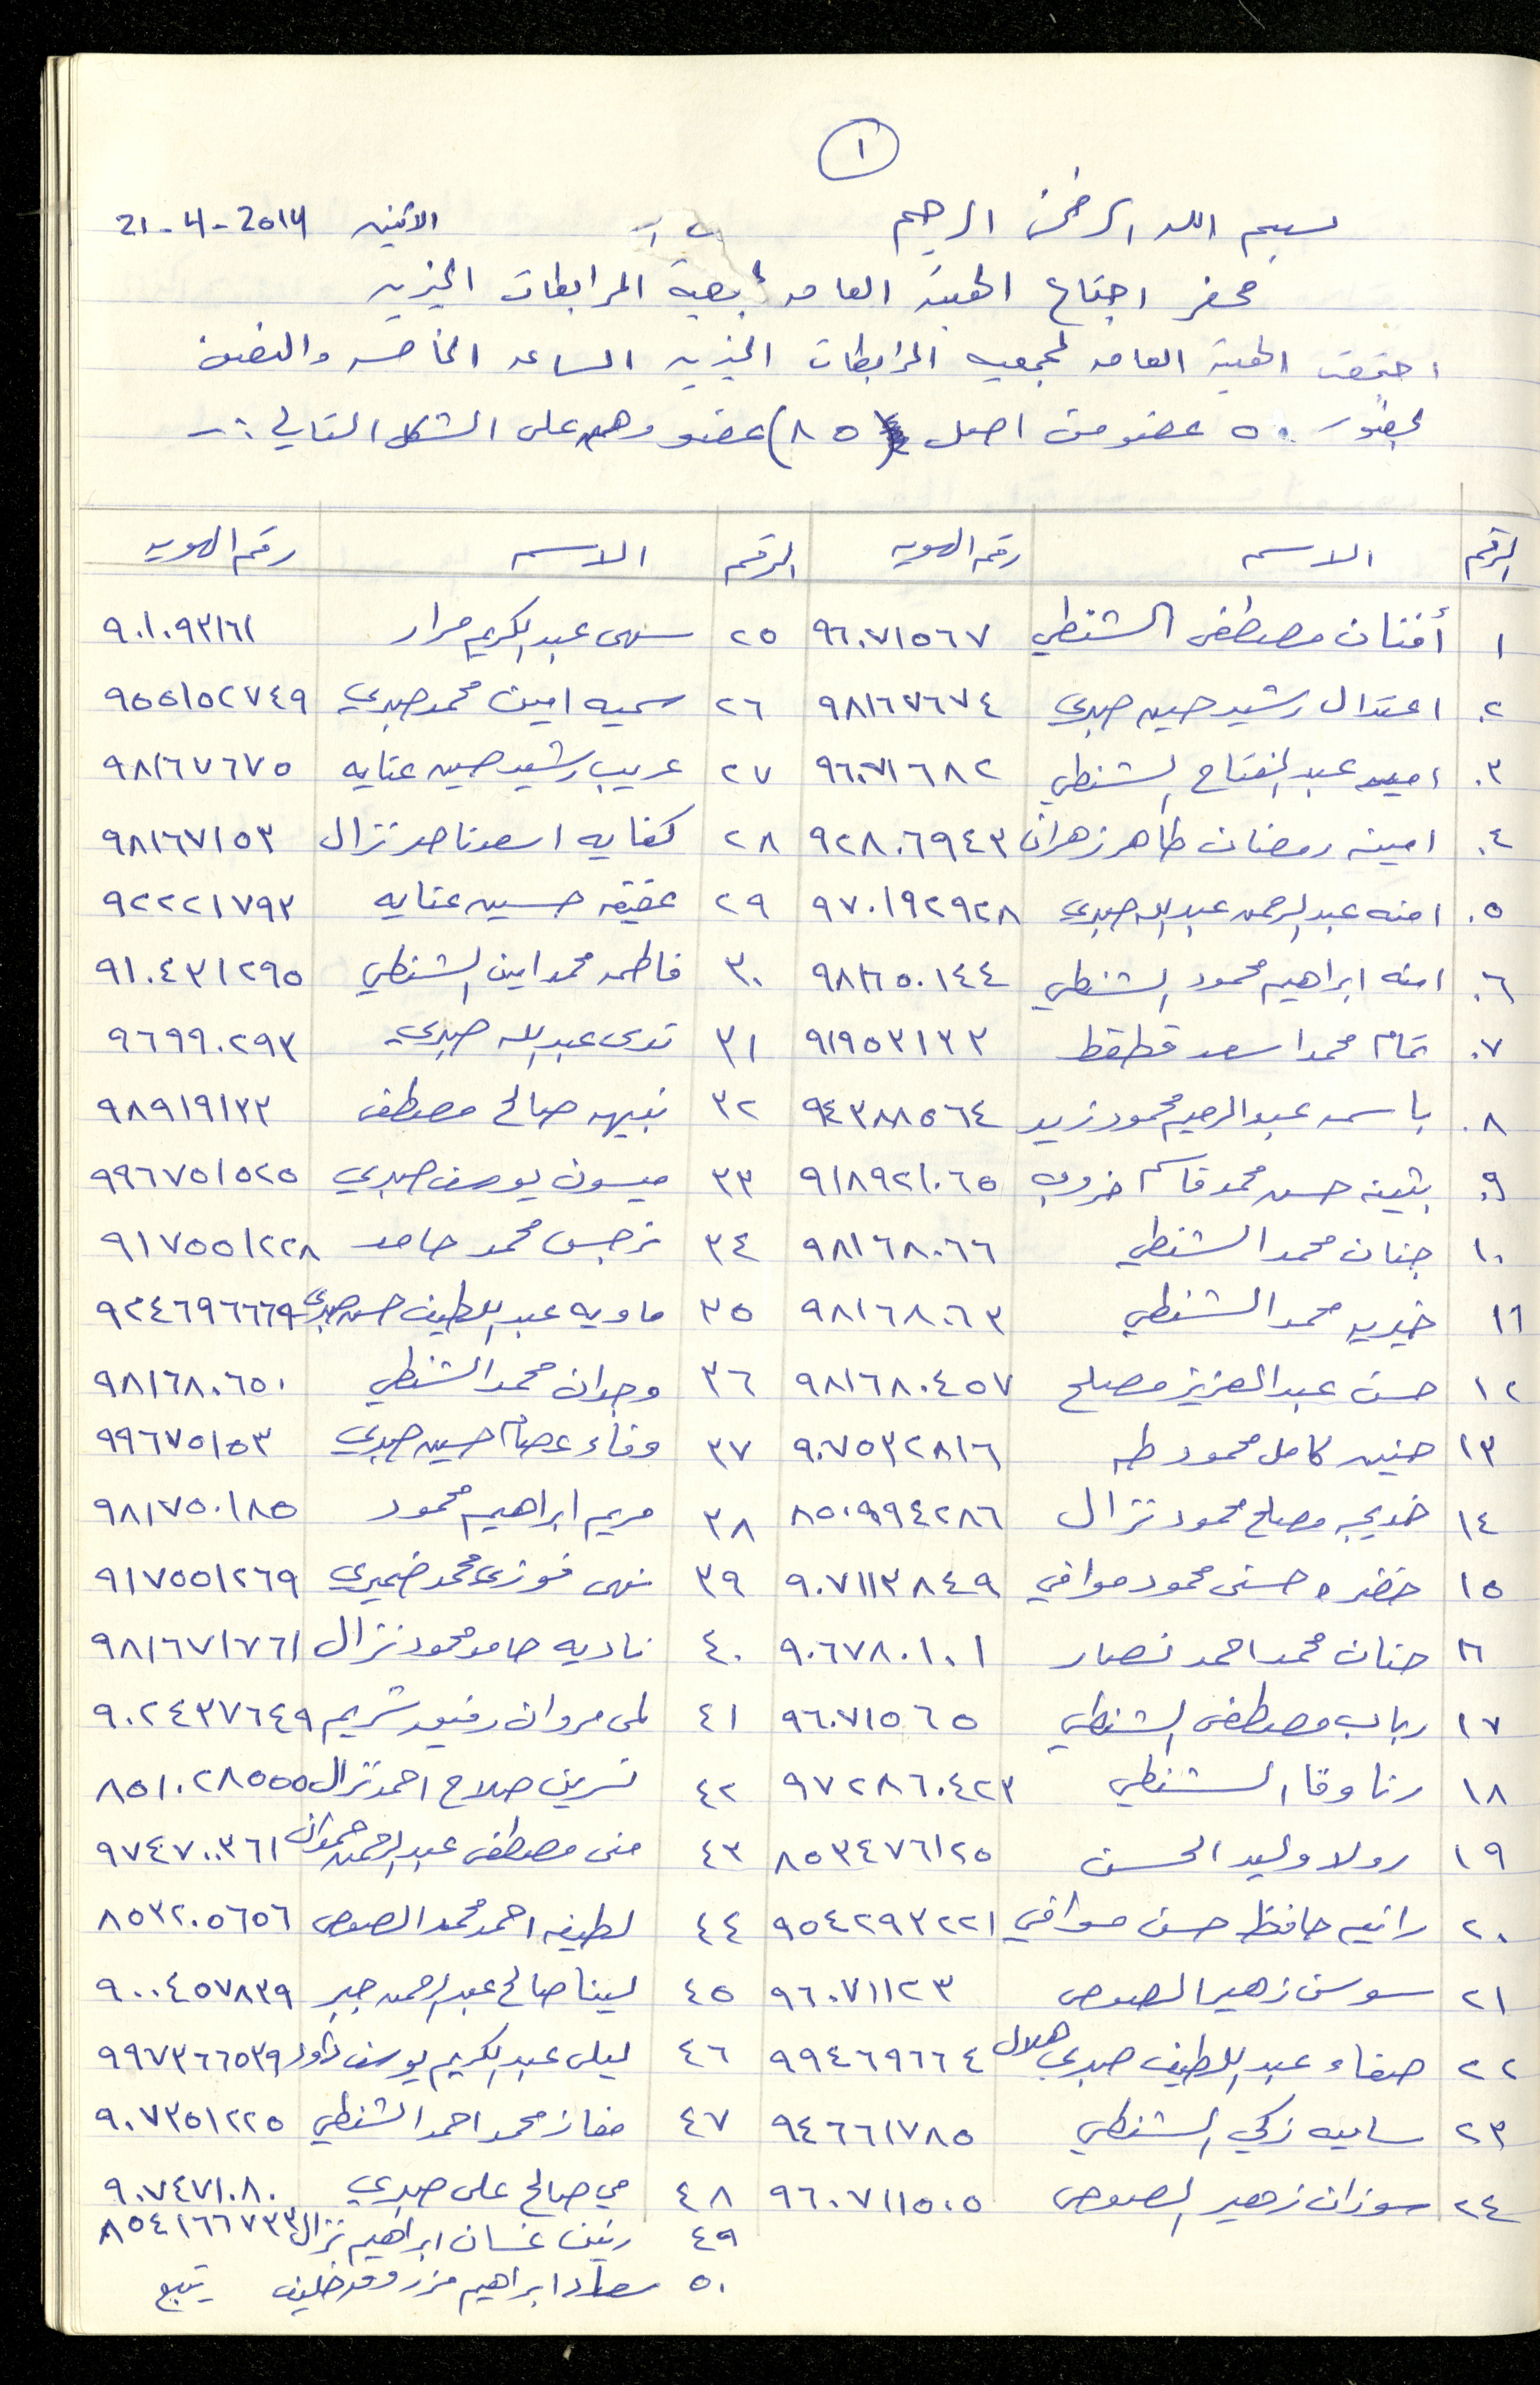 ١
بسم الله الرحمن الرحيم الاثنين 21-4-2014
محضر اجتماع الهيئة العامه المرابطات الخيريه
اجتمعت الهيئة العامه لجمعيه المرابطات الخيريه الساعه الخامسه والنصف
بحضور ٥٠ عضو من اصل (٨٥) عضو وهم على الشكل التالي :-
الرقم الاسم رقم الهويه الرقم الاسم رقم الهويه
١ أفنان مصطفى الشنطي ٩٦٠٧١٥٦٧ ٢٥ سهى عبد الكريم مرار ٩٠١٠٩٣١٦١
٢. اعتدال رشيد حسين صبري ٩٨١٦٧٦٧٤ ٢٦ سميه امين محمد صبري ٩٥٥١٥٢٧٤٩
٣. عبد الفتاح الشنطي ٩٦٠٧١٦٨٢ ٢٧ عريب رشيد حسين عنايه ٩٨١٦٧٦٧٥
٤. امينه رمضان طاهر زهران ٩٢٨٠٦٩٤٣ ٢٨ كفايه اسعد ناصر نزال ٩٨١٦٧١٥٣
٥. امنه عبد الرحمن عبد الله صبري ٩٧٠١٩٢٩٢٨ ٢٩ عفيفه حسين عنايه ٩٢٢٢١٧٩٣
٦. امنه ابراهيم محمود الشنطي ٩٨١٦٥٠١٤٤ ٣٠ فاطمه محمد امين الشنطي ٩١٠٤٣١٢٩٥
٧. تمام محمد اسعد قطقط ٩١٩٥٣١٣٣ ٣١ ندى عبد الله صبري ٩٦٩٩٠٢٩٣
٨. باسمه عبد الرحيم محمود زيد ٩٤٣٨٨٥٦٤ ٣٢ نبيهه صالح مصطفى ٩٨٩١٩١٣٣
٩. بثينه حسن محمد قاسم خروب ٩١٨٩٢١٠٦٥ ٣٣ ميسون يوسف صبري ٩٩٦٧٥١٥٢٥
١٠ جنان محمد الشنطي ٩٨١٦٨٠٦٦ ٣٤ نرجس محمد حامد ٩١٧٥٥١٢٢٨
١١ خيريه محمد الشنطي ٩٨١٦٨٠٦٣ ٣٥ ماويه عبد اللطيف حسن صبري ٩٢٤٦٩٦٦٦٩
١٢ حسن عبد العزيز مصلح ٩٨١٦٨٠٤٥٧ ٣٦ وجدان محمد الشنطي ٩٨١٦٨٠٦٥٠
١٣ حنين كامل محمود طه ٩٠٧٥٣٢٨١٦ ٣٧ وفاء عصام حسين صبري ٩٩٦٧٥١٥٣
١٤ خديجه مصلح محمود نزال ٨٥٠٩٩٤٢٨٦ ٣٨ مريم ابراهيم محمود ٩٨١٧٥٠١٨٥
١٥ خضره حسني محمود موافي ٩٠٧١١٣٨٤٩ ٣٩ نهى فوزي محمد ضميري ٩١٧٥٥١٢٦٩
١٦ حنان محمد احمد نصار ٩٠٦٧٨٠١٠١ ٤٠ ناديه حامد محمود نزال ٩٨١٦٧١٧٦١
١٧ رباب مصطفى الشنطي ٩٦٠٧١٥٦٥ ٤١ لمى مروان رفيق شريم ٩٠٢٤٣٧٦٤٩
١٨ رنا وفا الشنطي ٩٧٢٨٦٠٤٢٣ ٤٢ نسرين صلاح احمد نزال ٨٥١٠٢٨٥٥٥
١٩ رولا وليد الحسن ٨٥٣٤٧٦١٢٥ ٤٣ منى مصطفى عبد الرحمن حموان ٩٧٤٧٠٠٣٦١
٢٠ رانيه حافظ حسن موافي ٩٥٤٢٩٣٢٢١ ٤٤ لطيفه احمد محمد الصوص ٨٥٣٢٠٥٦٥٦
٢١ سوسن زهير الصوص ٩٦٠٧١١٢٣ ٤٥ لينا صالح عبد الرحمن جبر ٩٠٠٤٥٧٨٣٩
٢٢ صفاء عبد اللطيف صبري هلال ٩٩٤٦٩٦٦٤ ٤٦ ليلى عبد الكريم يوسف داود ٩٩٧٣٦٦٥٣٩
٢٣ ساميه زكي الشنطي ٩٤٦٦١٧٨٥ ٤٧ مفاز محمد احمد الشنطي ٩٠٧٣٥١٢٢٥
٢٤ سوزان زهير الصوص ٩٦٠٧١١٥٠٥ ٤٨ مي صالح علي صبري ٩٠٧٤٧١٠٨٠
٤٩ رنين غسان ابراهيم نزال ٨٥٤١٦٦٧٣٣
٥٠ سعاد ابراهيم مرزوق خليف يتبع